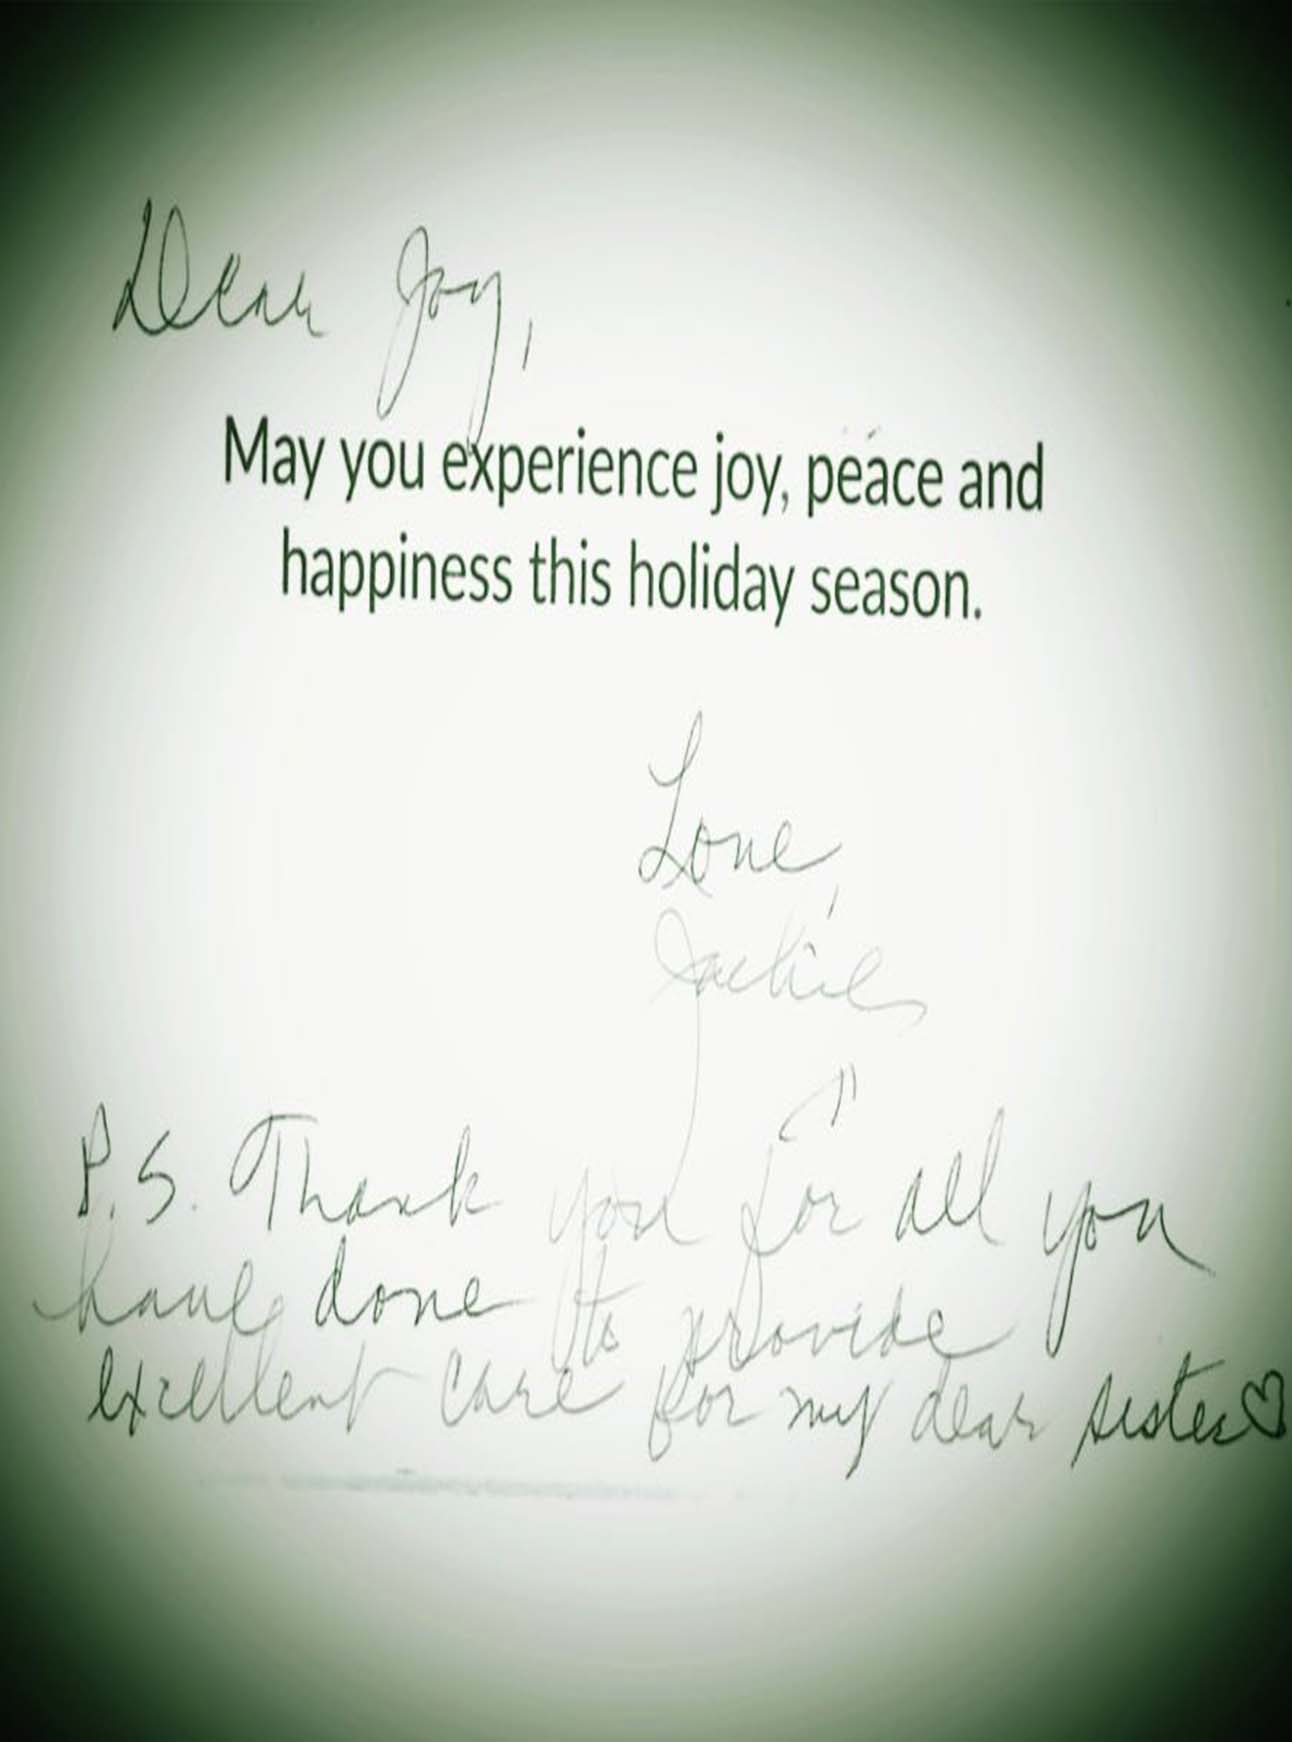 Dear Joy,
May you experience joy, peace and
happiness this holiday season.
Love,
Jackie
P.S. Thank you for all you
have done to provide
excellent care for my dear sister♡